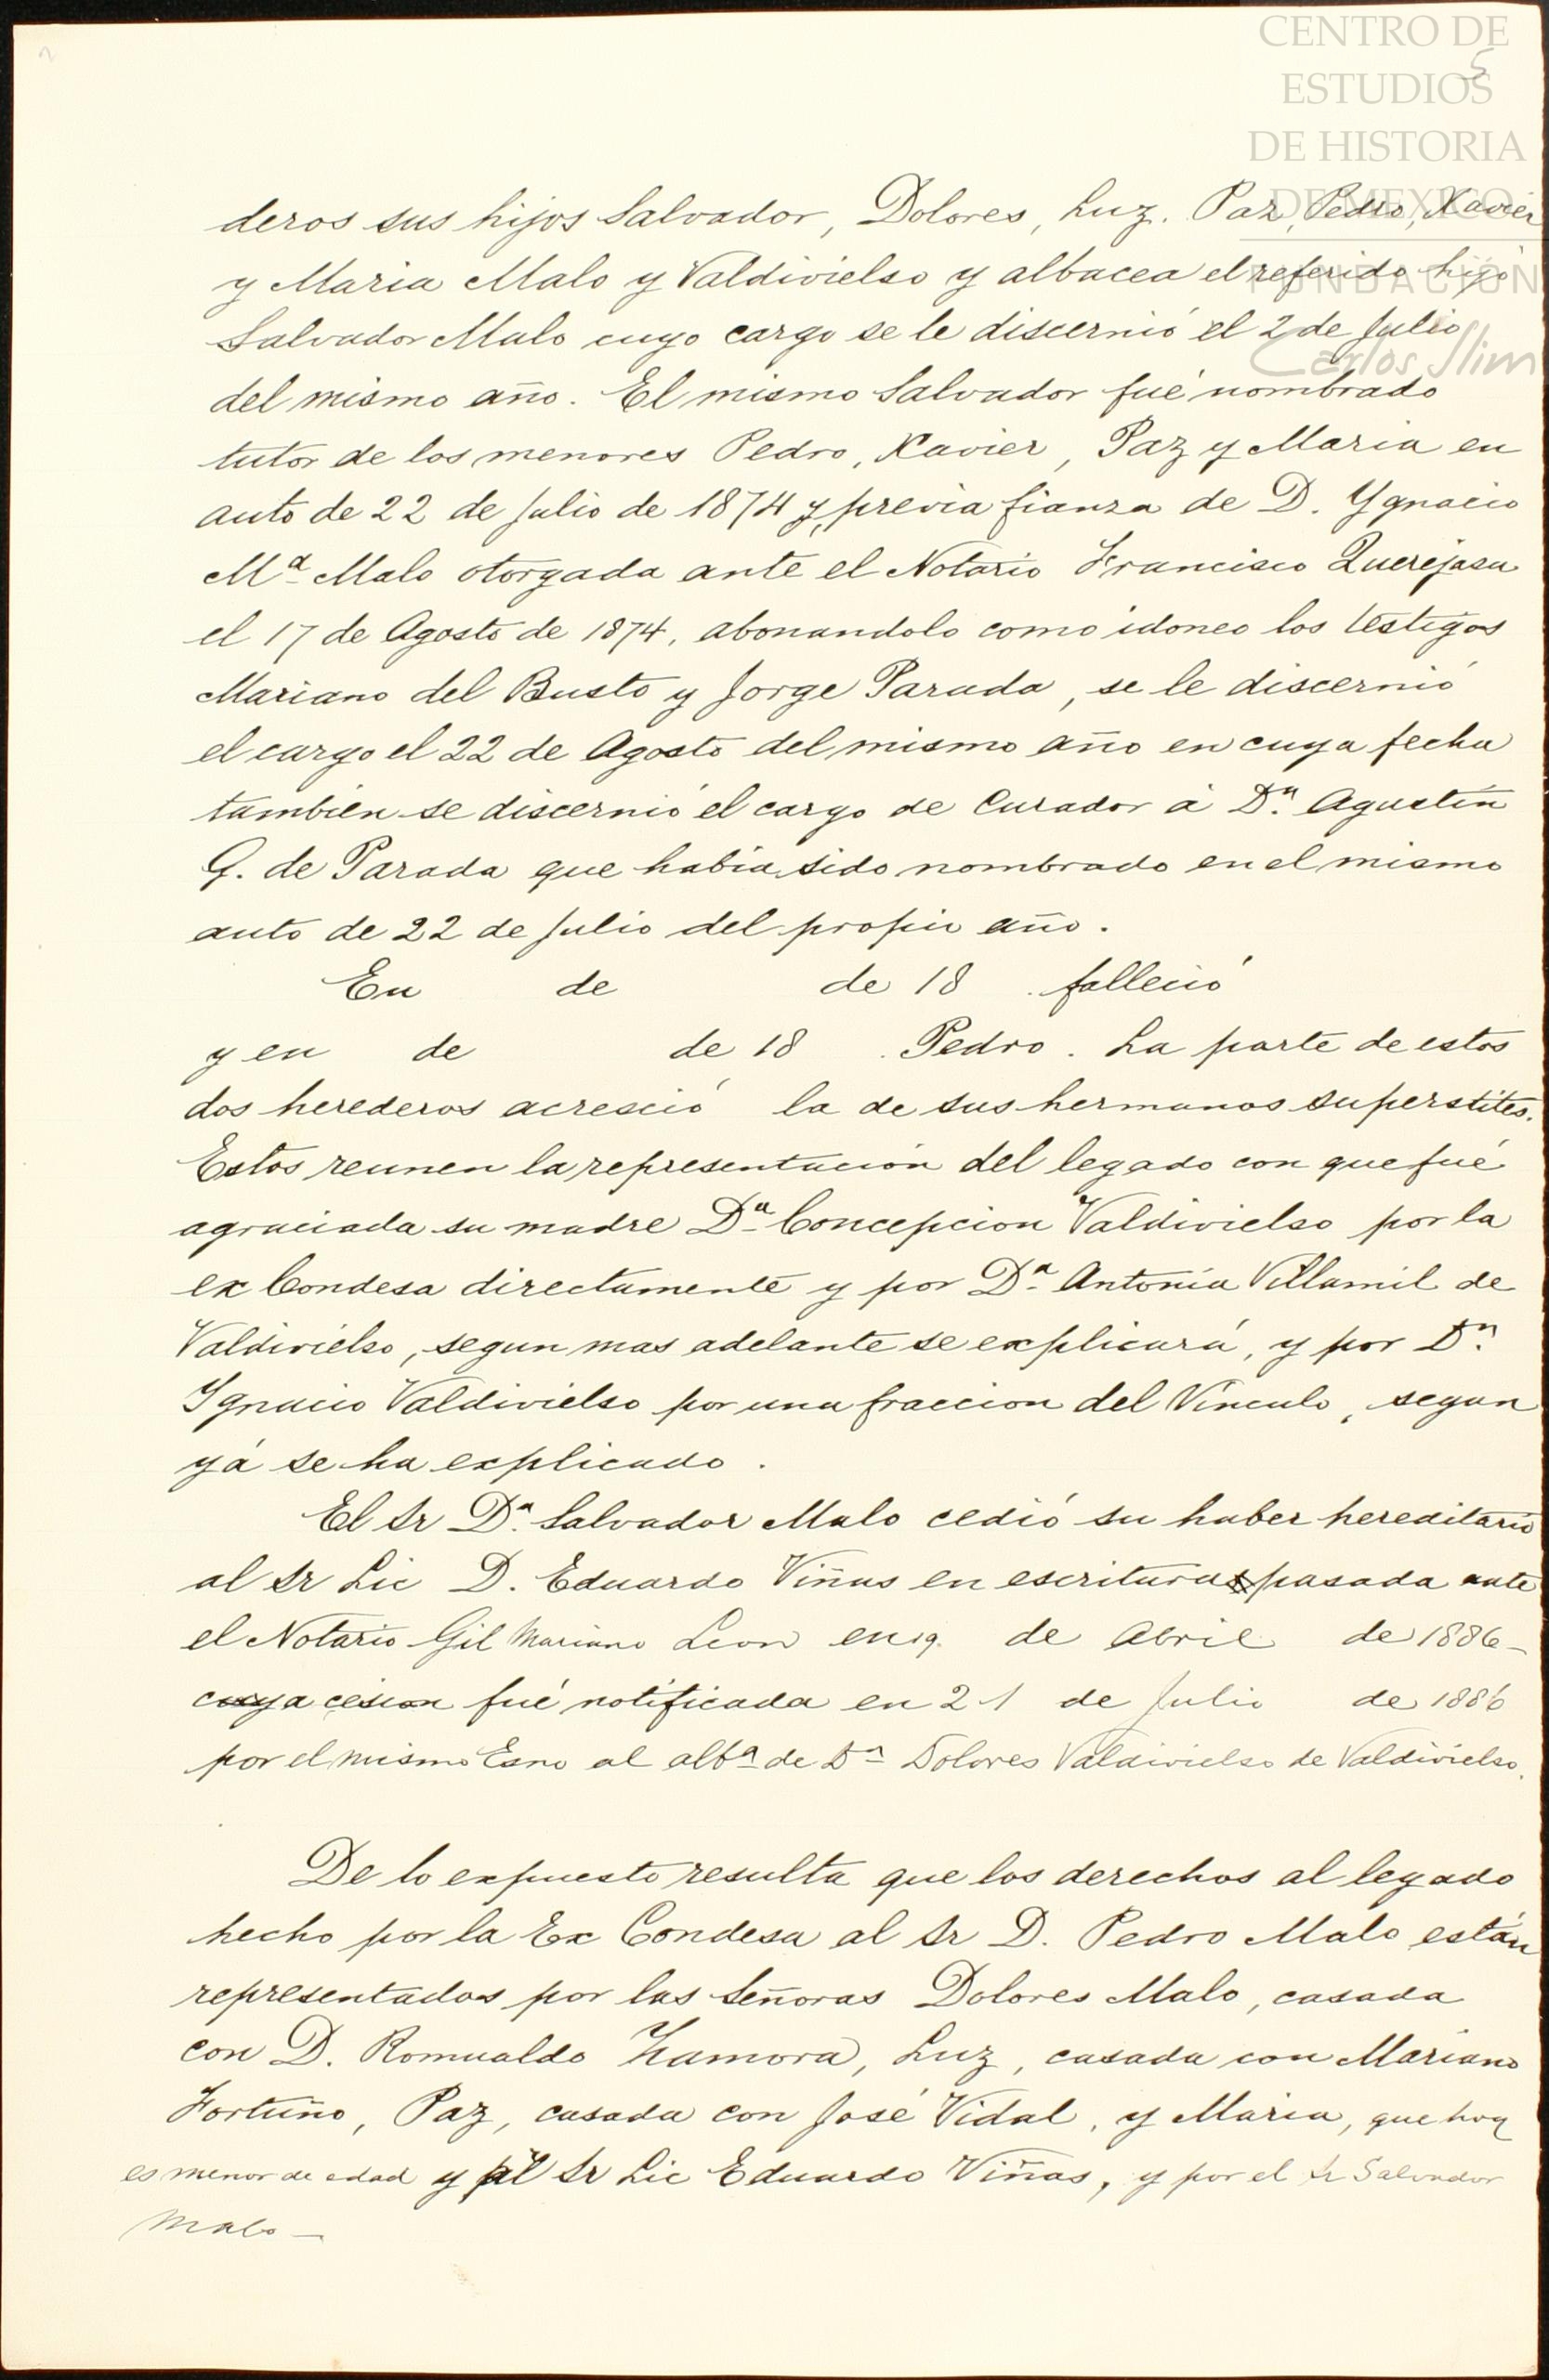 CENTRO DE
ESTUDIOS
DE HISTORIA
DE MEXICO
FUNDACIÓN
Carlos Slim
5
deros sus hijos Salvador, Dolores, Luz. Paz, Pedro, Xavier
y Maria Malo y Valdivielso y albacea el referido hijo
Salvador Malo cuyo cargo se le discernió el 2 de Julio
del mismo año. El mismo Salvador fué nombrado
tutor de los menores Pedro, Xavier, Paz y Maria en
auto de 22 de Julio de 1874 y, previa fianza de D. Ygnacio
Mª Malo otorgada ante el Notario Francisco Querejasu
el 17 de Agosto de 1874, abonandolo como idoneo los testigos
Mariano del Busto y Jorge Parada, se le discernió
el cargo el 22 de Agosto del mismo año en cuya fecha
tambien se discernió el cargo de Curador á Dn. Agustin
G. de Parada que habia sido nombrado en el mismo
auto de 22 de Julio del propio año.
En de de 18 . falleció
y en de de 18 . Pedro. La parte de estos
dos herederos acresció la de sus hermanos superstites.
Estos reunen la representacion del legado con que fué
agraciada su madre Dª Concepcion Valdivielso por la
ex Condesa directamente y por Dª Antonia Villamil de
Valdivielso, segun mas adelante se explicará, y por Dn.
Ygnacio Valdivielso por una fraccion del Vinculo, segun
yá se ha explicado.
El Sr Dn. Salvador Malo cedió su haber hereditario
al Sr Lic D. Eduardo Viñas en escritura pasada ante
el Notario Gil Mariano Leon en 19. de Abril de 1886-
cuya cesion fué notificada en 21 de Julio de 1886
por el mismo Esno al albª de Dª Dolores Valdivielso de Valdivielso.
De lo expuesto resulta que los derechos al legado
hecho por la Ex Condesa al Sr D. Pedro Malo están
representados por las Señoras Dolores Malo, casada
con D. Romualdo Zamora, Luz, casada con Mariano
Fortuño, Paz, casada con José Vidal, y Maria, que hoy
es menor de edad y al Sr Lic Eduardo Viñas, y por el Sr Salvador
Malo—